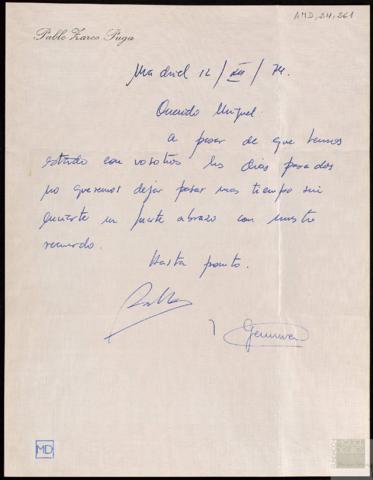 AMD, 24, 261
Pablo Zarco Puga
Madrid 12/XII/74.
Querido Miguel
A pesar de que hemos
estado con vosotros los dias pasados
no queremos dejar pasar mas tiempo sin
enviarte un fuerte abrazo con nuestro
recuerdo.
Hasta pronto.
Pablo
y
MD